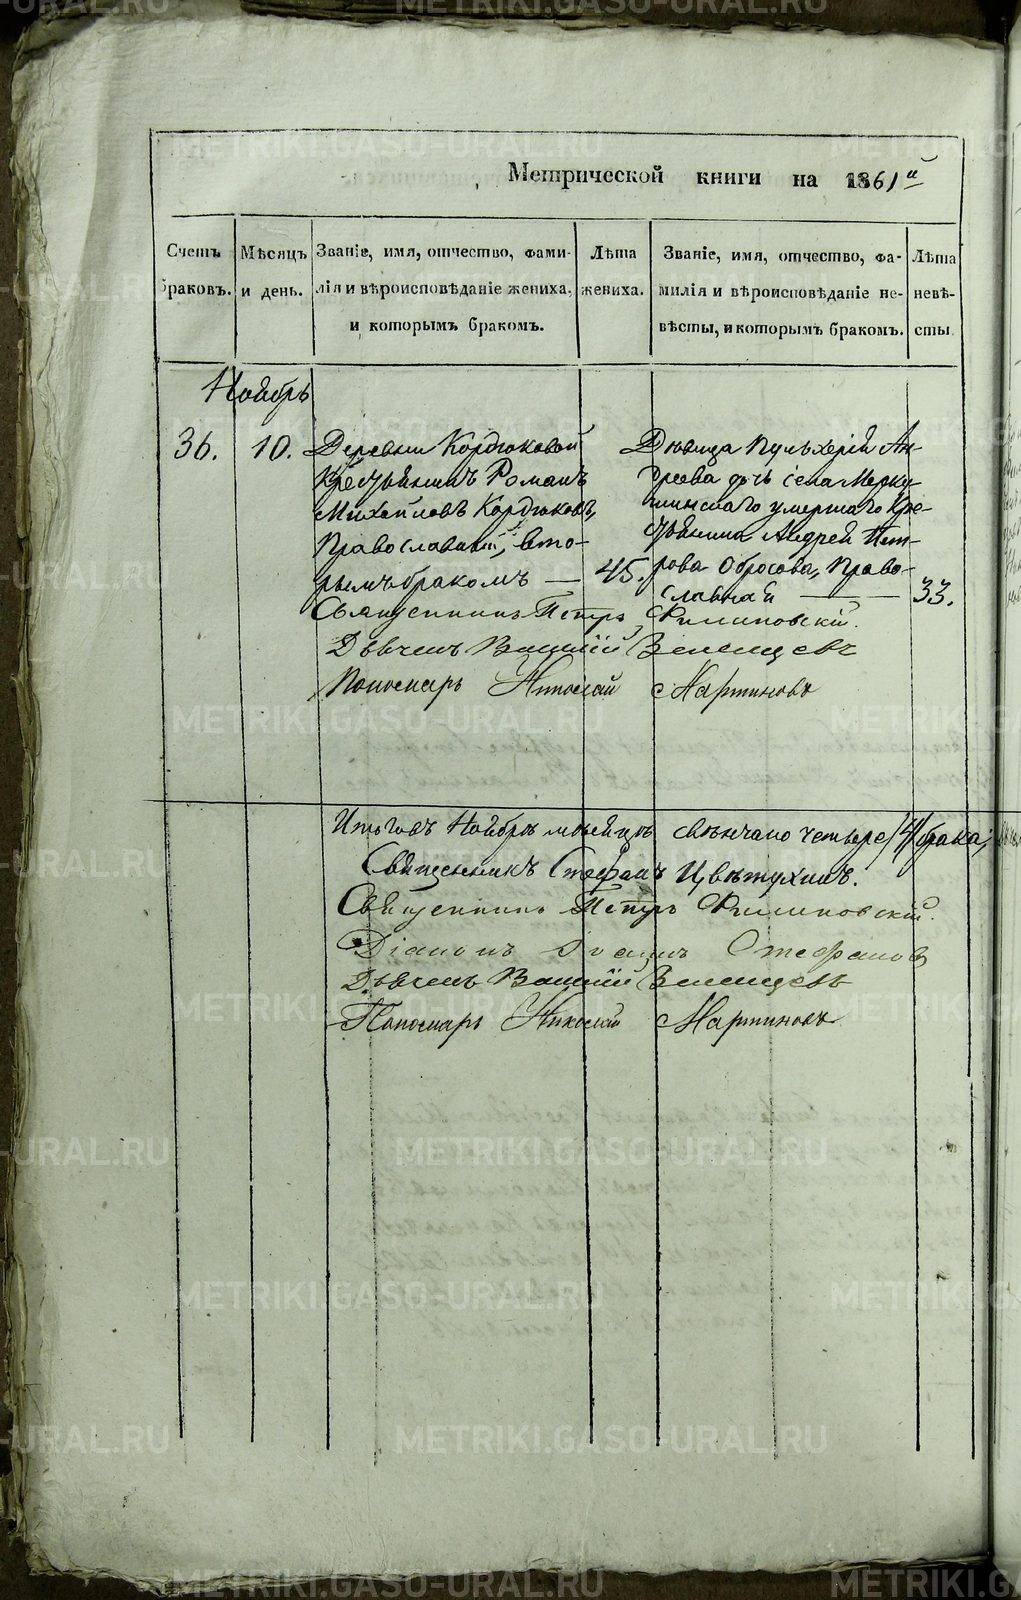 Метрической книги на 1861й
Счетъ браковъ.
Мѣсяцъ и день.
Званіе, имя, отчество, фами-
лія и вѣроисповѣданіе жениха,
и которымъ бракомъ.
Лѣта жениха.
Званіе, имя, отчество, фа-
милія и вѣроисповѣданіе не-
вѣсты, и которымъ бракомъ.
Лѣта невѣ-
сты.
Ноябрь
36. 10.
Деревни Кордюковой
Крестьянинъ Романъ
Михайловъ Кордюковъ,
Православный, вто-
рымъ бракомъ — 45.
Дѣвица Пульхерія Ан-
дреева дочь села Мерку-
шинскаго умершаго Кре-
стьянина Андрея Пет-
рова Обросова, Право-
славная — 33.
Священникъ Петръ Филиповскій.
Дьячекъ Василій Зеленцовъ
Пономарь Николай Мартиновъ
Итого въ Ноябрѣ мѣсяцѣ свѣнчано четыре /4/ брака;
Священникъ Стефанъ Цвѣтухинъ.
Священникъ Петръ Филиповскій.
Діаконъ Іоаннъ Стефановъ
Дьячекъ Василій Зеленцовъ
Пономарь Николай Мартиновъ
METRIKI.GASO-URAL.RU